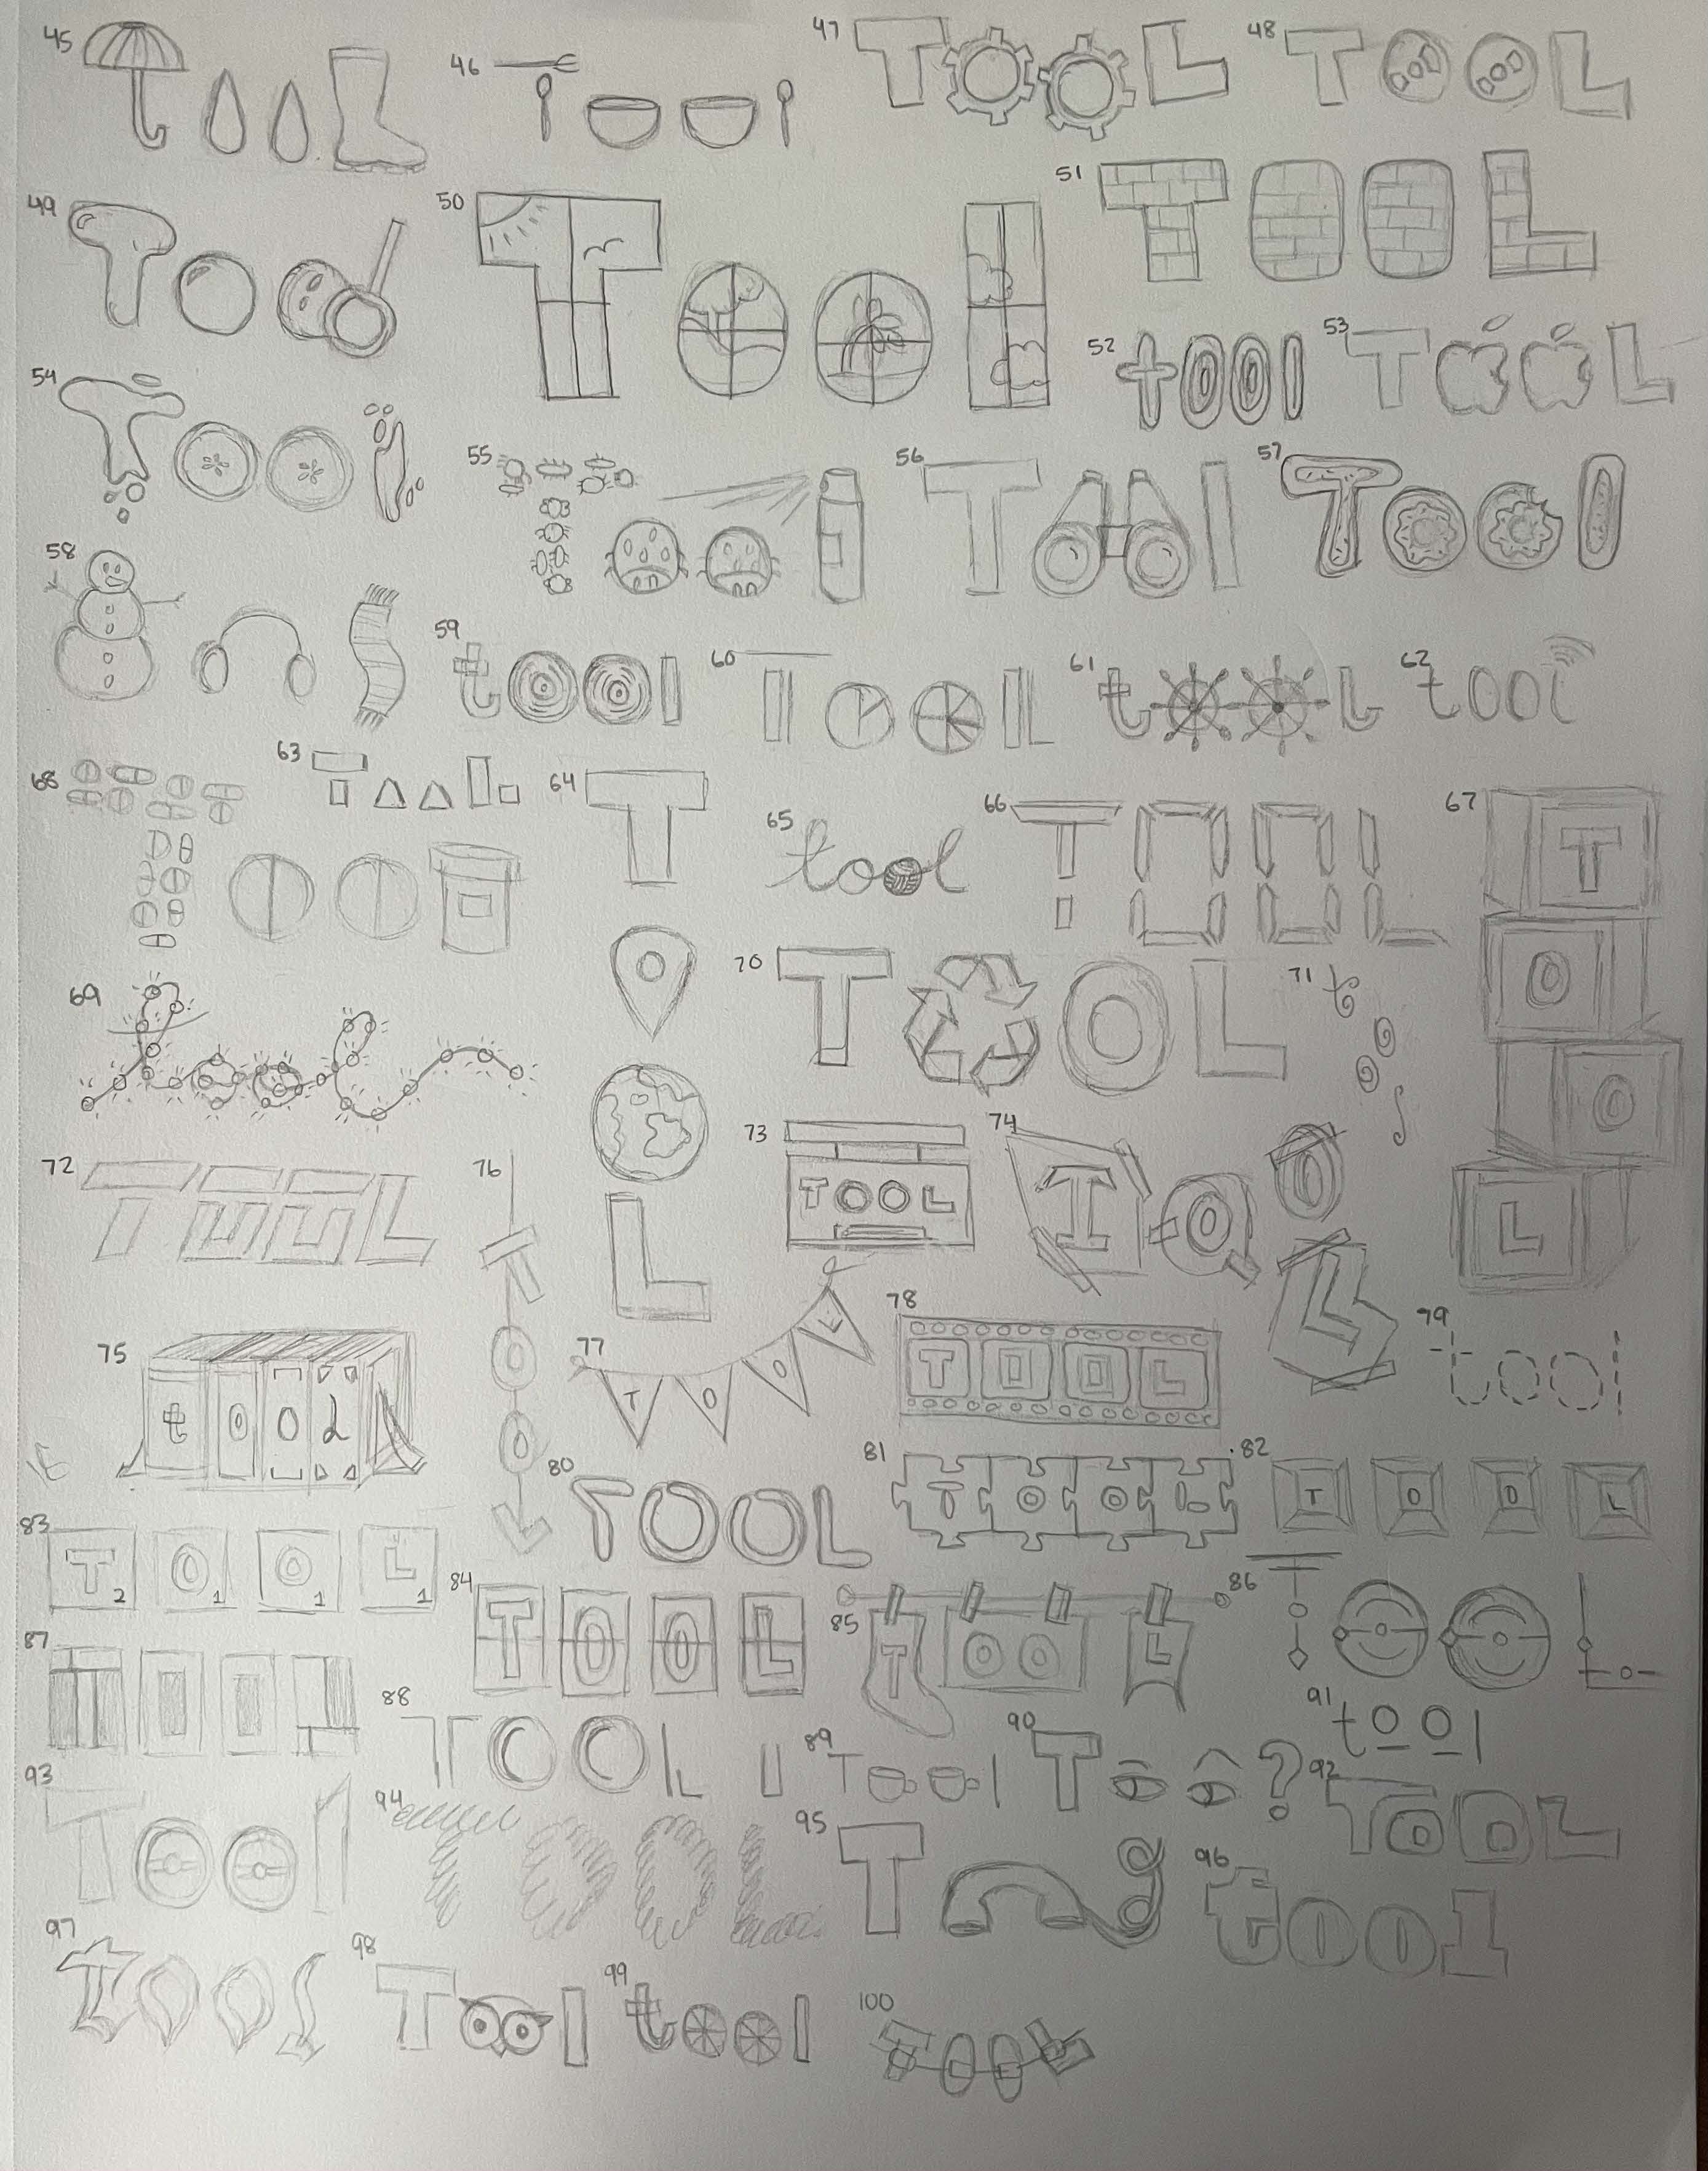 45
46
47 TOOL
48 TOOL
49 TOO
50 TOOl
51 TOOL
52 tool
53 TOOL
54 TOOl
55
56 TOOl
57 TOOl
58
59 tool
60 TOOL
61 tool
62 tool
63
64 T
L
65 tool
66 TOOL
67 T
O
O
L
68
69 tool
70 TOOL
71 tool
72 TOOL
73 TOOL
74 TOOL
75 tool
76 TOOL
77 TOOL
78 TOOL
79 tool
80 TOOL
81 TOOL
82 TOOL
83 T2 O1 O1 L1
84 TOOL
85 TOOL
86 TOOL
87 TOOL
88 TOOL
89 TOOl
90 T ?
91 tool
92 TOOL
93 TOOl
94 TOOL
95 T
96 tool
97 tool
98 TOOl
99 tool
100 TOOL